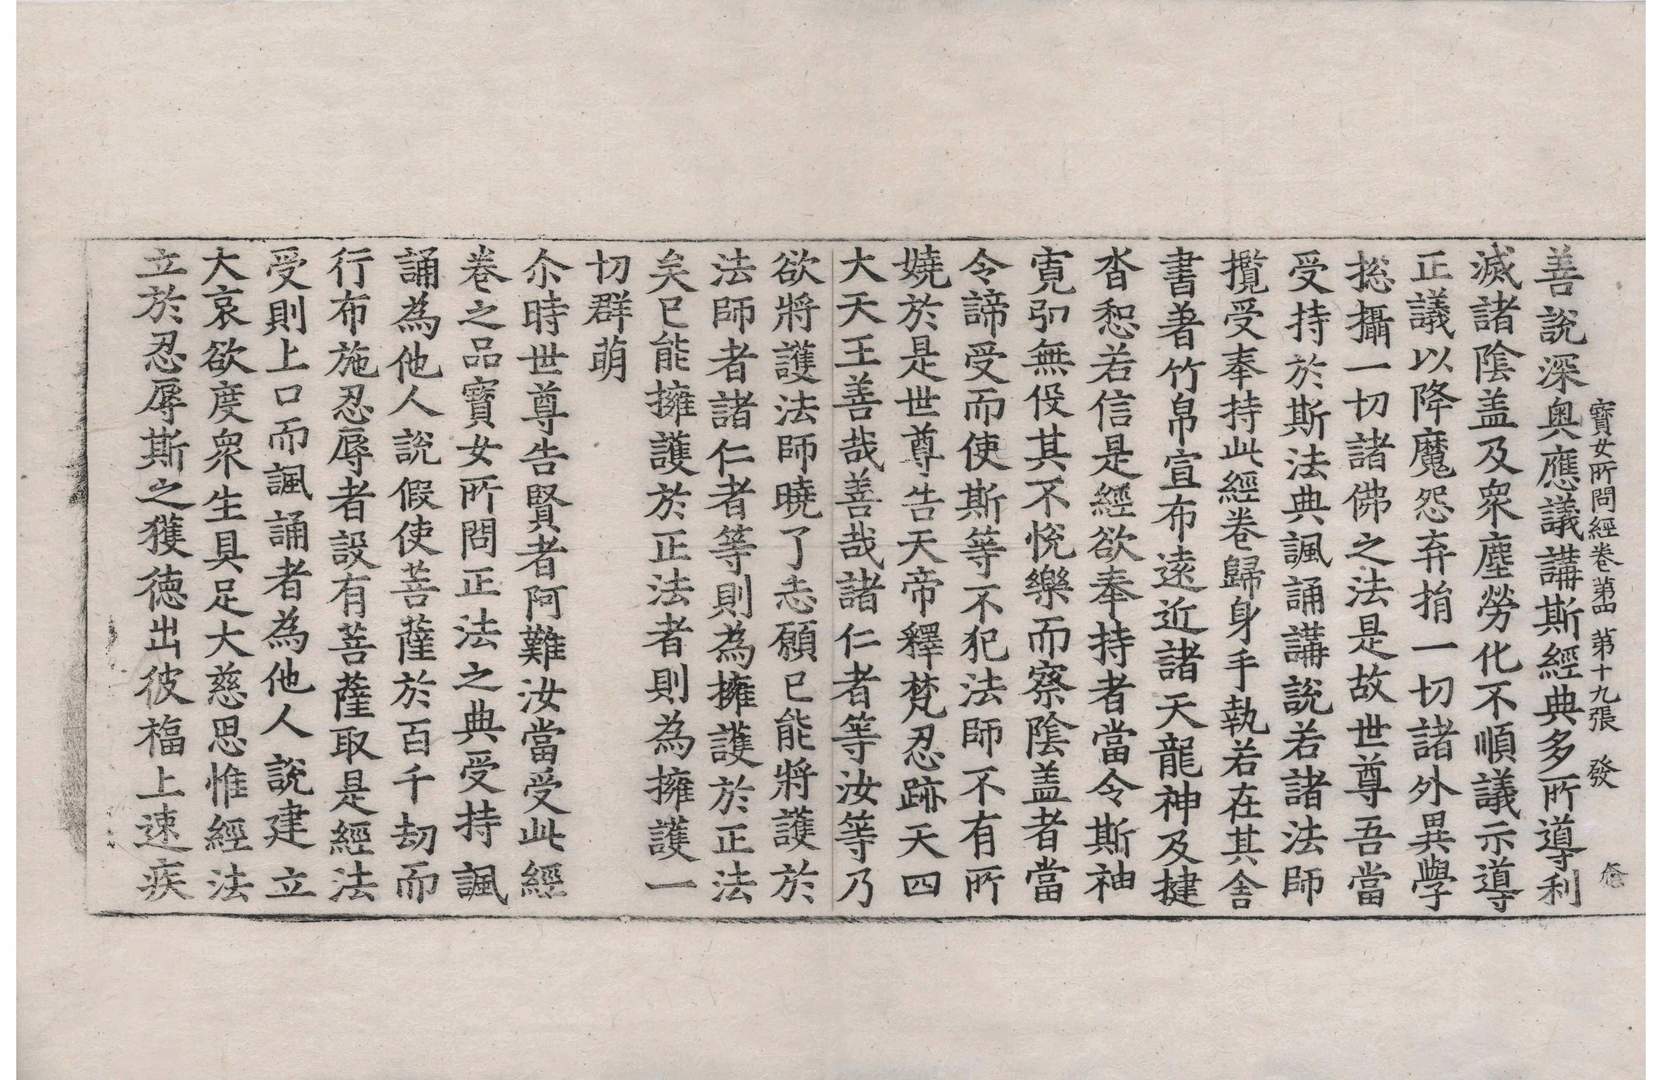 寶女所問經卷第四 第十九張 發
善說深奧應議講斯經典多所導利
滅諸陰盖及衆塵勞化不順議示導
正議以降魔怨弃捐一切諸外異學
揔攝一切諸佛之法是故世尊吾當
受持於斯法典諷誦講說若諸法師
攬受奉持此經卷歸身手執若在其舍
書著竹帛宣布遠近諸天龍神及揵
沓惒若信是經欲奉持者當令斯袖
寬弘無伇其不悅樂而察陰盖者當
令諦受而使斯等不犯法師不有所
嬈於是世尊告天帝釋梵忍跡天四
大天王善哉善哉諸仁者等汝等乃
欲將護法師曉了志願已能將護於
法師者諸仁者等則為擁護於正法
矣已能擁護於正法者則為擁護一
切群萌
尒時世尊告賢者阿難汝當受此經
卷之品寶女所問正法之典受持諷
誦為他人說假使菩薩於百千劫而
行布施忍辱者設有菩薩取是經法
受則上口而諷誦者為他人說建立
大哀欲度衆生具足大慈思惟經法
立於忍辱斯之獲德出彼福上速疾